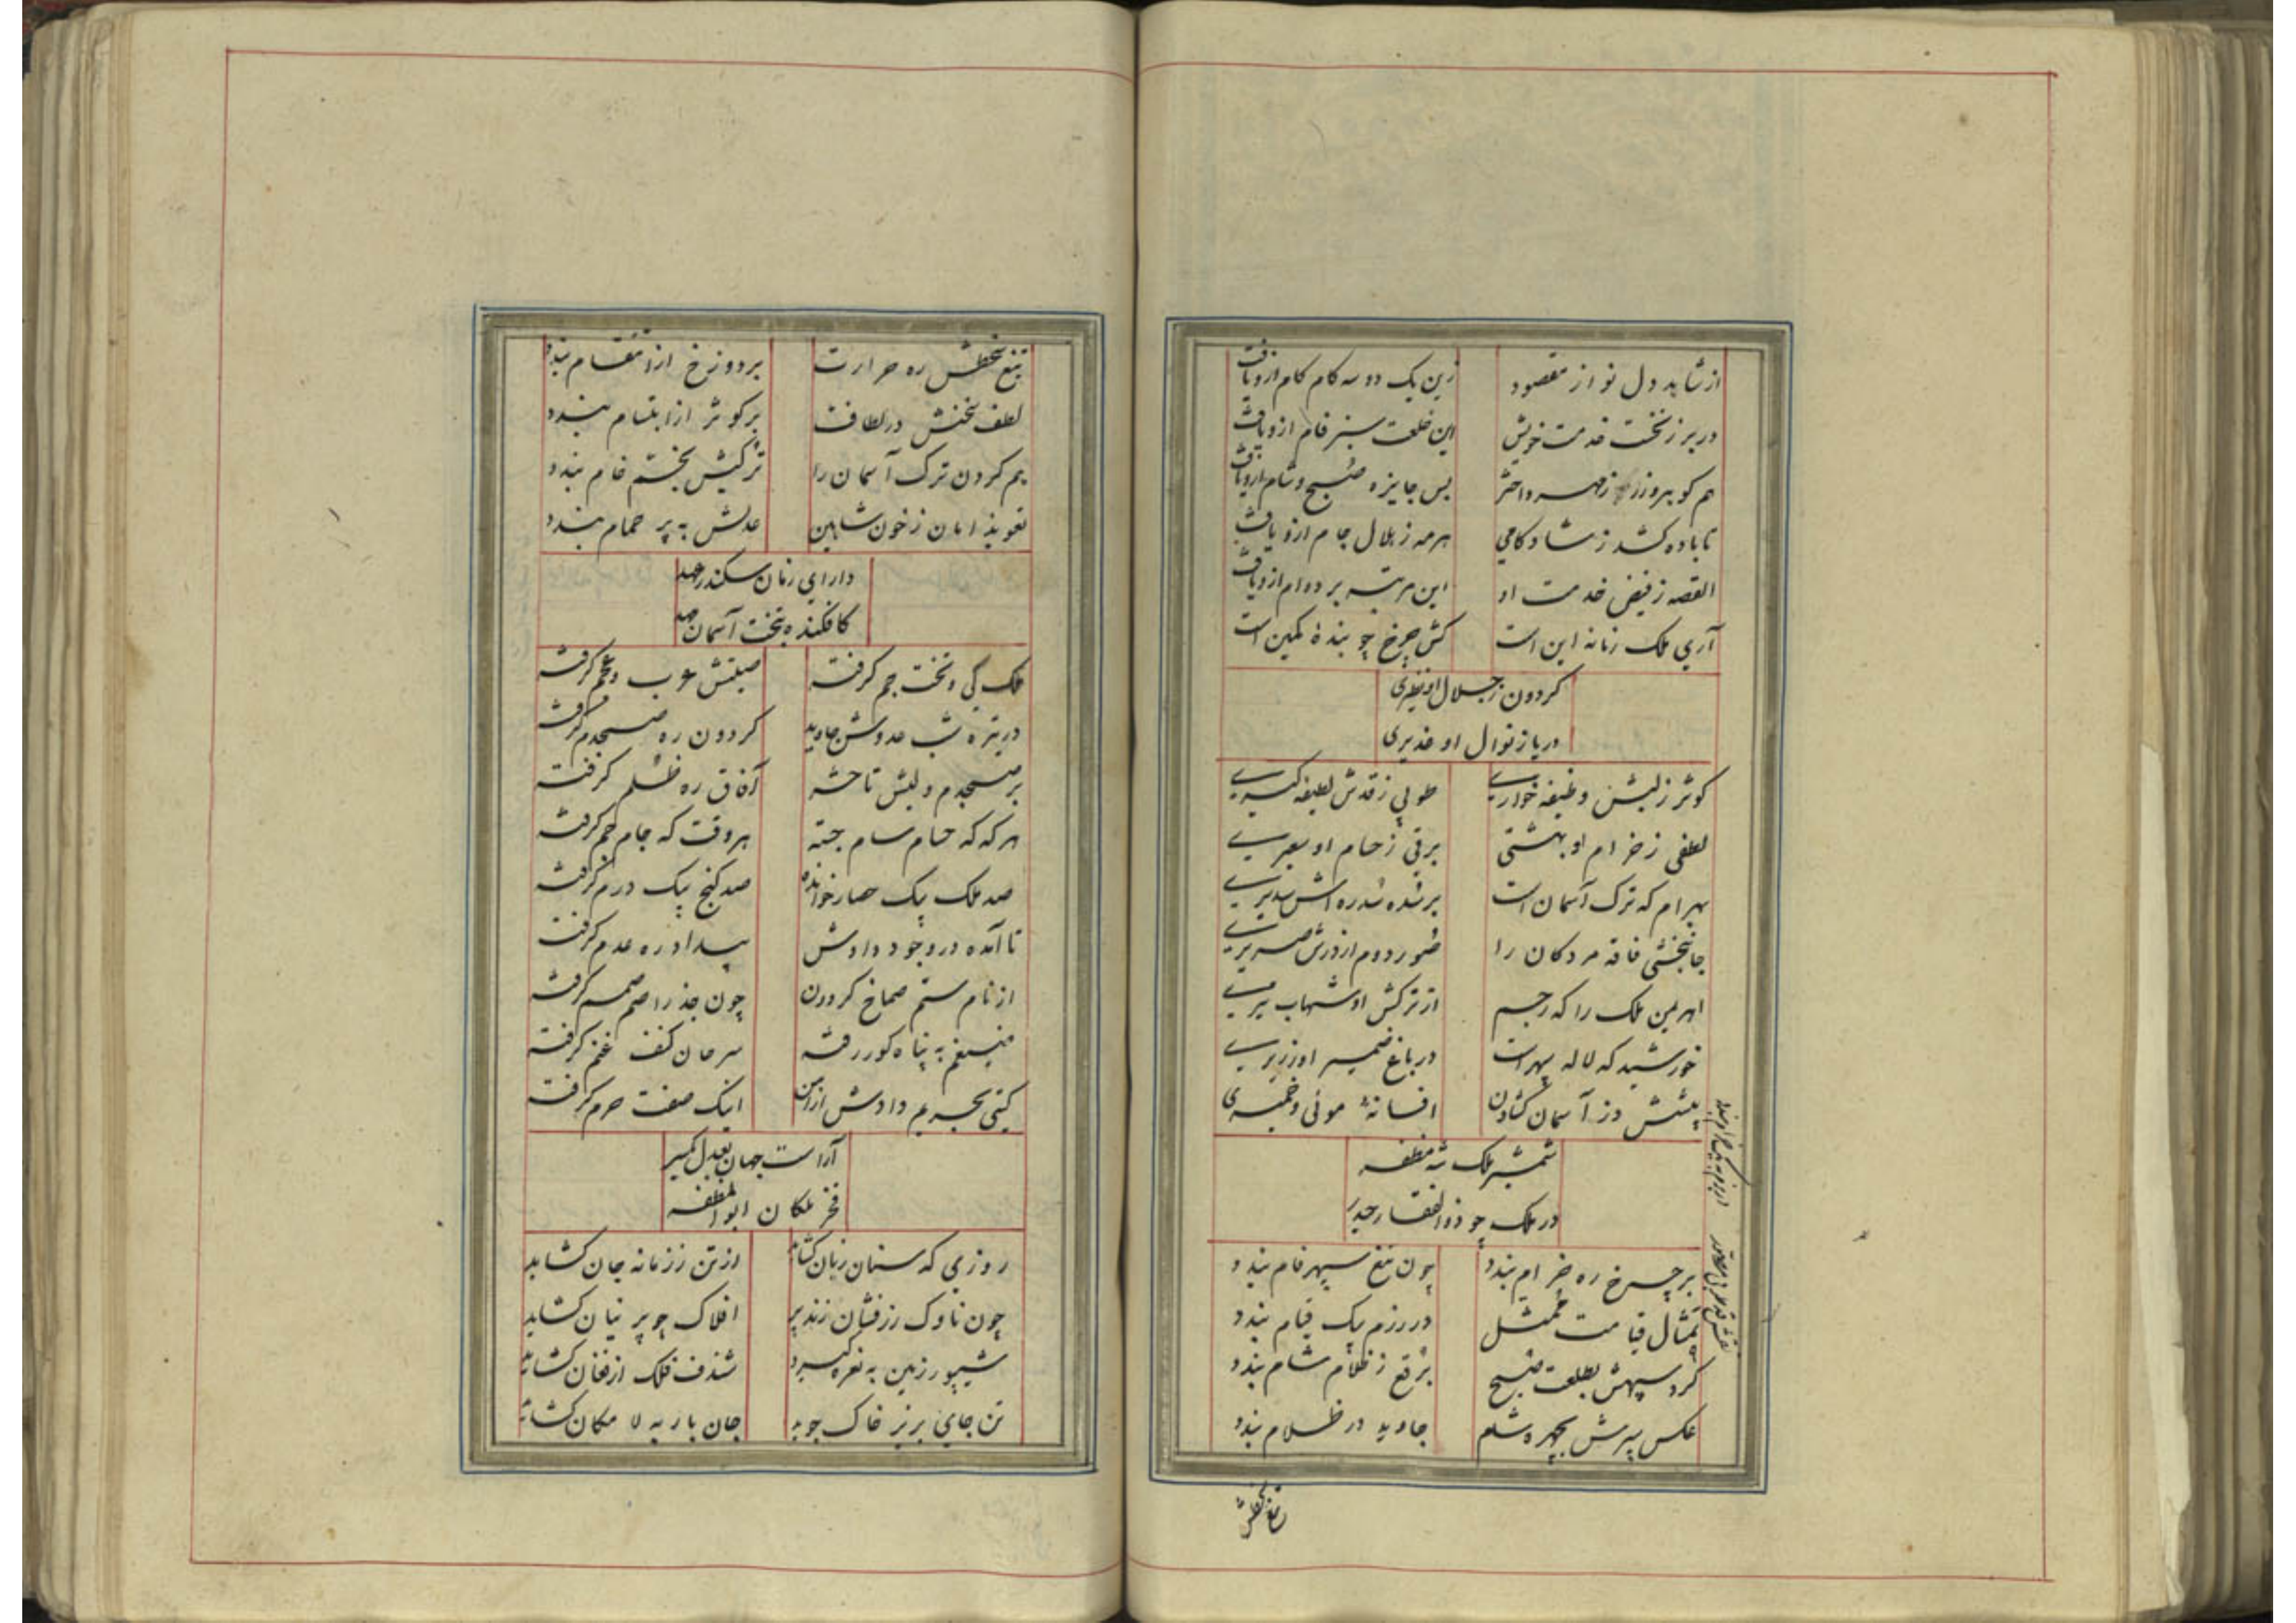 از شاهد دل نواز مقصود
زین یک دو سه کام کام ازو یافت
در بر ز نخست خدمت خویش
این خلعت سبز فام ازو یافت
هم کو بروز ز مهر و اختر
بس جایزه صبح و شام ازو یافت
تا باده کشد ز شادکامی
هر مه ز هلال جام ازو یافت
القصه ز فیض خدمت او
این مرتبه بر دوام ازو یافت
آری ملک زمانه این است
کش چرخ چو بندهٔ کمین است
گردون ز جلال او نظیری
دریا ز نوال او غدیری
کوثر ز لبش وظیفه خواری
طوبی ز قدش لطیفه گیری
لطفی ز خرام او بهشتی
برقی ز حسام او سعیری
بهرام که ترک آسمان است
بر سده سدره اش سدیری
جانبخشی فاقه مردکان را
صور دوم از درش صریری
اهرمن ملک را که رجم
از ترکش او شهاب تیری
خورشید که لاله سپهر است
در باغ ضمیر او زریری
پیشش دز آسمان گشادن
افسانهٔ موئی و خمیری
شمشیر ملک شه مظفر
در ملک چو ذوالفقار حیدر
بر چرخ ره خرام بندد
چون تیغ سپهر فام بندد
تمثال قیامت ممثل
در رزم بیک قیام بندد
گرد سپهش بطلعت صبح
برقع ز ظلام شام بندد
عکس سپرش بچهره شام
جاوید در ظلام بندد
تیغ سخطش
تیغ سخطش ره حرارت
بر دوزخ از انتقام بندد
لطف سخنش در لطافت
بر کوثر از ابتسام بندد
یم کردن ترک آسمان را
ترکیش بخم خام بندد
تعویذ امان ز خون شاهین
عدلش به پر حمام بندد
دارای زمان سکندر عهد
کافکنده بتخت آسمان مهد
ملک کی و تخت جم گرفته
صیتش عرب و عجم گرفته
در تیره شب عدوش جاوید
گردون ره صبحدم گرفته
بر صبحدم ولیش تا حشر
آفاق ره ظلم گرفته
هر گه که حسام سام جسته
هر وقت که جام جم گرفته
صد ملک بیک حصار خوانده
صد گنج بیک درم گرفته
تا آمده در وجود دادش
بیداد ره عدم گرفته
از نام ستم صماخ گردون
چون جذر اصم صمم گرفته
ضیغم به پناه گور رفته
سرحان کنف غنم گرفته
گیتی بحریم دادش از امن
اینک صفت حرم گرفته
آراست جهان بعدل یکسر
فخر ملکان ابوالمظفر
روزی که سنان زبان گشاید
از تن ز زمانه جان گشاید
چون ناوک رزفشان زند پر
افلاک چو پرنیان گشاید
شیپور زمین به نعره گیرد
شندف فلک از فغان گشاید
تن جای بزیر خاک جوید
جان بار به لا مکان گشاید